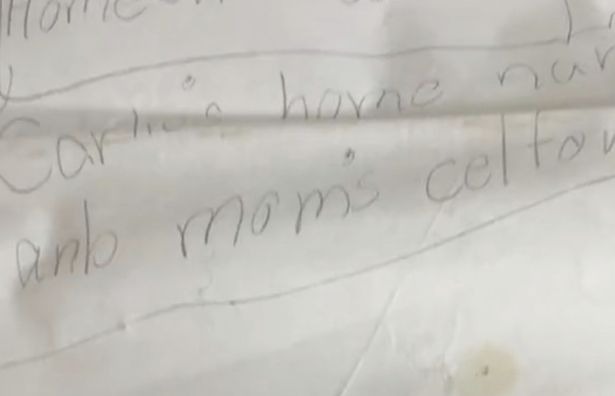 Home
Carlie's home nur
anb mom's celfou